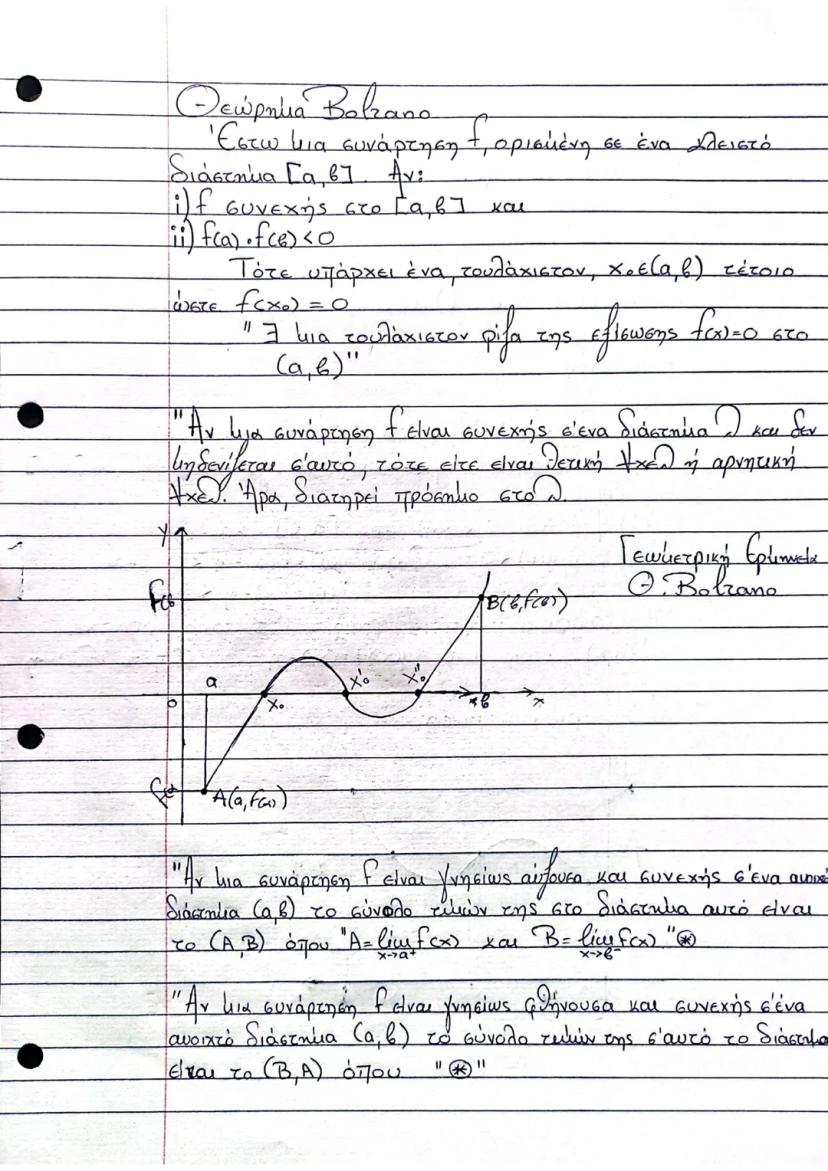 Θεώρημα Bolzano
Έστω μια συνάρτηση f, ορισμένη σε ένα κλειστό
διάστημα [α,β]. Αν:
i) f συνεχής στο [α,β] και
ii) f(α)·f(β)<0
Τότε υπάρχει ένα, τουλάχιστον, x₀∈(α,β) τέτοιο
ώστε f(x₀) = 0
"∃ μια τουλάχιστον ρίζα της εξίσωσης f(x)=0 στο
(α,β)"
"Αν μια συνάρτηση f είναι συνεχής σ'ένα διάστημα Δ και δεν
μηδενίζεται σ'αυτό, τότε είτε είναι θετική ∀x∈Δ ή αρνητική
∀x∈Δ. Άρα, διατηρεί πρόσημο στο Δ.
Γεωμετρική Ερμηνεία
Θ. Bolzano
y
f(β)
B(β,f(β))
α
x₀
x₀'
x₀''
β
x
0
f(α)
A(α,f(α))
"Αν μια συνάρτηση f είναι γνησίως αύξουσα και συνεχής σ'ένα ανοιχτό
διάστημα (α,β) το σύνολο τιμών της στο διάστημα αυτό είναι
το (A,B) όπου "A=lim f(x) και B=lim f(x) "⊛
x→α⁺ x→β⁻
"Αν μια συνάρτηση f είναι γνησίως φθήνουσα και συνεχής σ'ένα
ανοιχτό διάστημα (α,β) το σύνολο τιμών της σ'αυτό το διάστημα
είναι το (B,A) όπου "⊛"